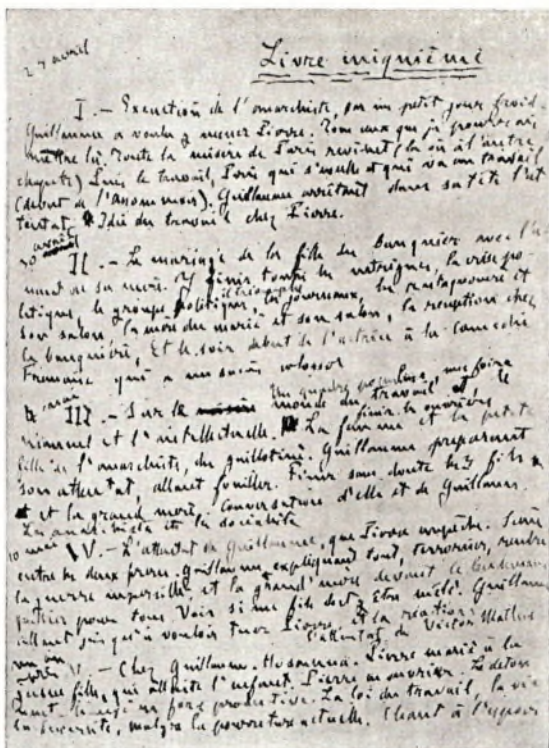 27 avril
Livre cinquième
I. — Exécution de l'anarchiste, par un petit jour froid.
Guillaume a voulu y mener Pierre. Tous ceux que je pourrai
mettre là. Toute la misère de Paris revient (là où à l'autre
chapitre) Puis le travail, Paris qui s'éveille et qui va au travail
(début de l'Assommoir). Guillaume arrêtant dans sa tête l'at
tentat. Idée du travail chez Pierre.
30 avril
II. — Le mariage de la fille du banquier avec l'a
mant de sa mère. Y finir toutes les intrigues, la crise po
litique, le groupe politique, il triomphe les journaux, et
son salon, la mère du marié et son salon, la réception chez
le banquier, Et le soir début de l'actrice à la Comédie
Française qui a un succès colossal
mai
III. — Sur le monde du travail et le
manuel et l'intellectuelle. La femme et la petite
fille de l'anarchiste, du guillotiné. Guillaume préparant
son attentat, allant fouiller. Finir sans doute les 3 fils
et la grand'mère, conversation d'elle et de Guillaume.
Les anarchistes et les socialistes
10 mai
IV. — L'attentat de Guillaume, que Pierre empêche. Scène
entre les deux frères. Guillaume expliquant tout, terroriser, rendre
la guerre impossible, et la grand'mère devant le
pour tous Voir si un fils doit y être mêlé. Guillaume
allant jusqu'à vouloir tuer Pierre, et la réaction
l'attentat de Victor Mathis
un an
V. — Chez Guillaume. Hosanna. Pierre marié à la
jeune fille, qui allaite l'enfant. Pierre un ouvrier. Le déton
nant, en force productive. La loi du travail, la vie
malgré la pourriture actuelle. Chant à l'espoir